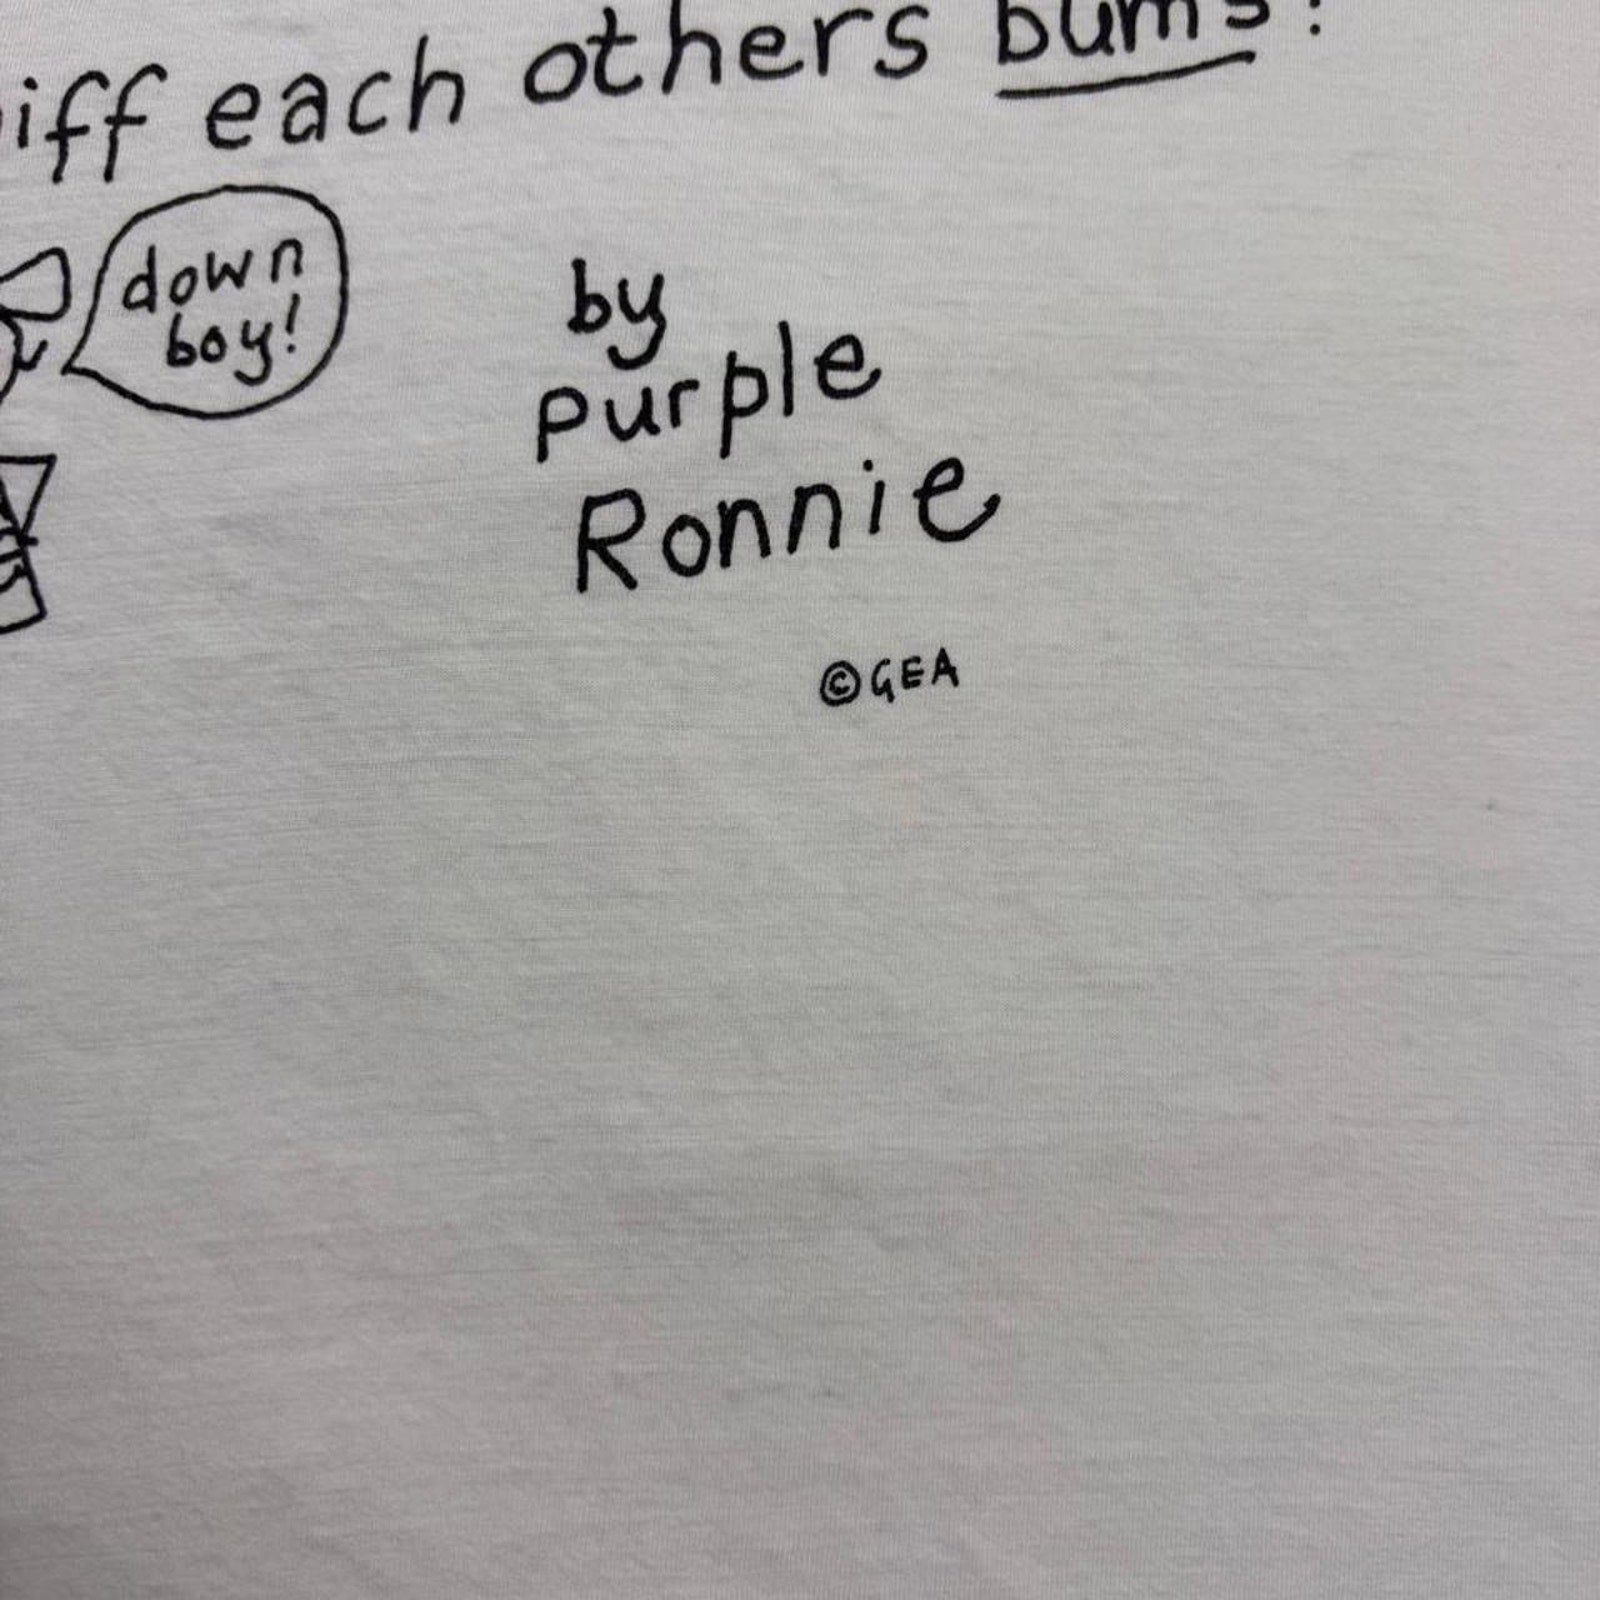 iff each others bums!
down
boy!
by
purple
Ronnie
©GEA